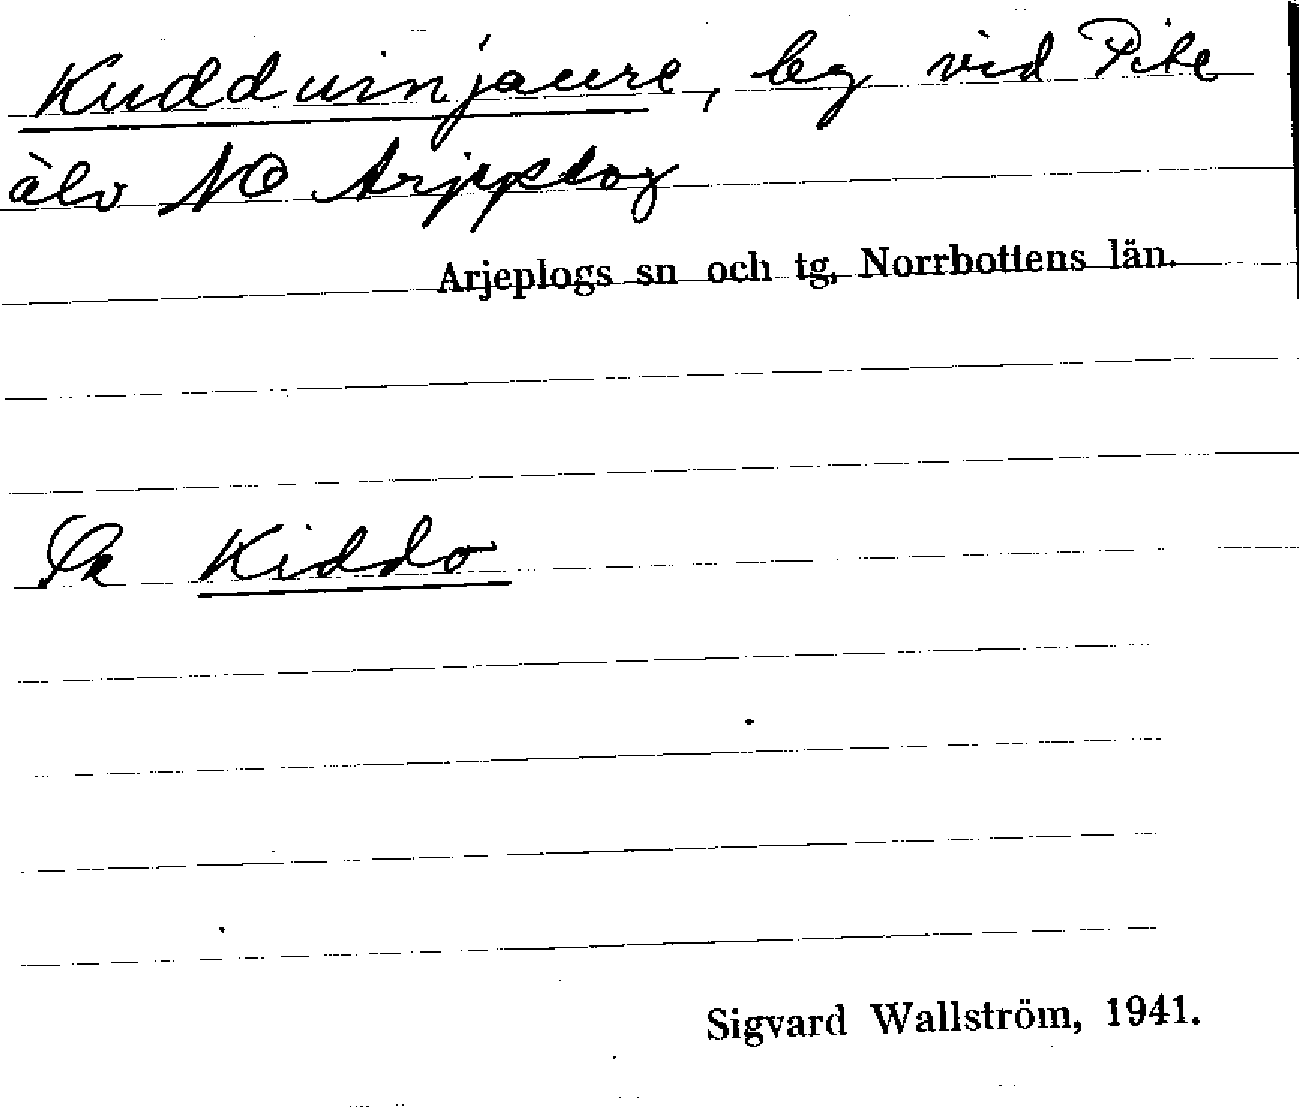 Kudduinjaure, beg vid Pite
älv NO Arjeplog
Arjeplogs sn och tg, Norrbottens län.
Se Kiddo
Sigvard Wallström, 1941.